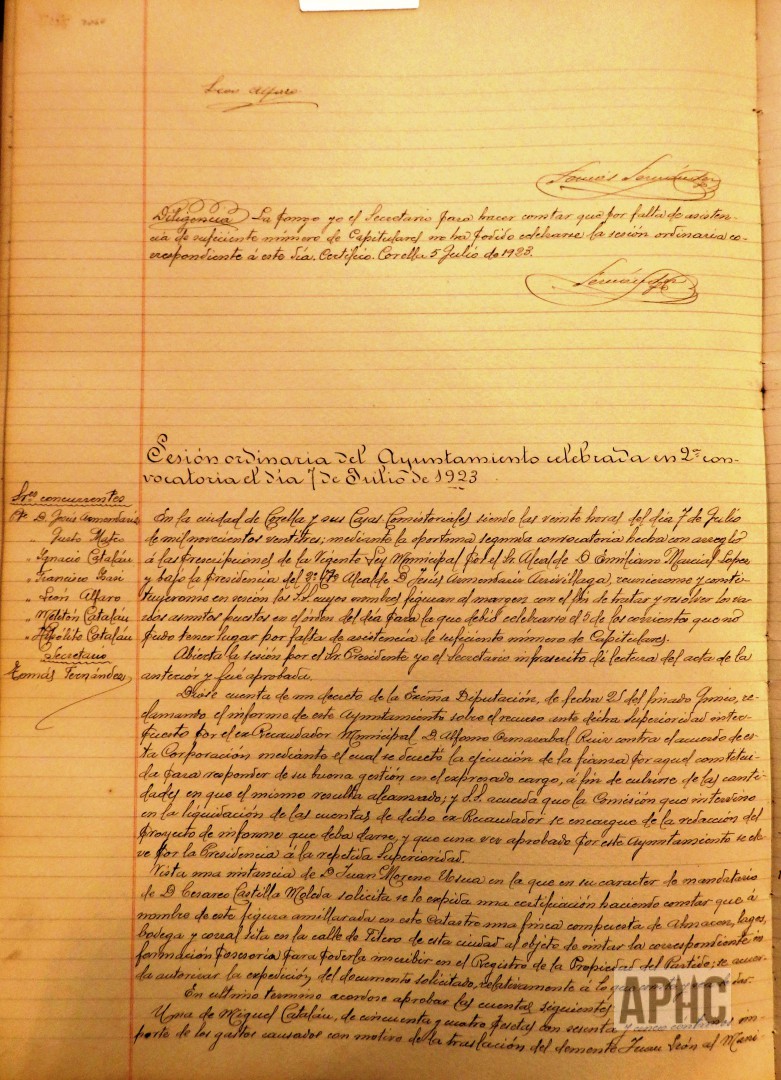 León Alfaro
Tomás Fernández
Diligencia La pongo yo el Secretario para hacer constar que por falta de asisten-
cia de suficiente número de Capitulares no ha podido celebrarse la sesión ordinaria co-
rrespondiente á este día. Certifico. Corella 5 Julio de 1923.
Fernández
Sesión ordinaria del Ayuntamiento celebrada en 2ª con-
vocatoria el día 7 de Julio de 1923
Sres. concurrentes
Pte. D. Jesús Armendáriz
" Justo Mateo
" Ignacio Catalán
" Francisco
" León Alfaro
" Melitón Catalán
" Hipólito Catalán
Secretario
Tomás Fernández
En la ciudad de Corella y sus Casas Consistoriales siendo las veinte horas del día 7 de Julio
de mil novecientos veintitres; mediante la oportuna segunda convocatoria hecha con arreglo
á las prescripciones de la Vigente Ley Municipal por el Sr. Alcalde D. Emiliano Marcial Lopez
y bajo la Presidencia del 2º Tte. Alcalde D. Jesús Armendáriz Arrivillaga, reunieronse y consti-
tuyeronse en sesión los S.S. cuyos nombres figuran al margen con el fin de tratar y resolver los va-
rios asuntos puestos en el órden del día para la que debió celebrarse el 5 de los corrientes que no
pudo tener lugar por falta de asistencia de suficiente número de Capitulares.
Abierta la sesión por el Sr. Presidente yo el Secretario infrascrito dí lectura del acta de la
anterior y fué aprobada.
Dióse cuenta de un decreto de la Excma Diputación, de fecha 25 del finado Junio, re-
clamando el informe de este Ayuntamiento sobre el recurso ante dicha Superioridad inter-
puesto por el ex-Recaudador Municipal D. Alfonso Ormazabal Ruiz contra el acuerdo de es-
ta Corporación mediante el cual se decretó la ejecución de la fianza por aquel constitui-
da para responder de su buena gestión en el expresado cargo, á fin de cubrirse de las canti-
dades en que el mismo resulta alcanzado; y S.S. acuerda que la Comisión que intervino
en la liquidación de las cuentas de dicho ex-Recaudador se encargue de la redacción del
proyecto de informe que deba darse, y que una vez aprobado por este Ayuntamiento se ele-
ve por la Presidencia á la repetida Superioridad.
Vista una instancia de D. Juan Moreno Usua en la que en su caracter de mandatario
de D. Cesareo Castilla Moleda solicita se le expida una certificación haciendo constar que á
nombre de este figura amillarada en este Catastro una finca compuesta de Almacen, lagos,
bodega y corral sita en la calle de Fitero de esta ciudad al objeto de instar la correspondiente in-
formación posesoria para poderla inscribir en el Registro de la Propiedad del Partido; se acuer-
da autorizar la expedición del documento solicitado, relativamente á lo que
En ultimo termino acordose aprobar las cuentas siguientes
Una de Miguel Catalán, de cincuenta y cuatro pesetas con sesenta y cinco centimos im-
porte de los gastos causados con motivo de la traslación del demente Juan León al Mani-
APHC